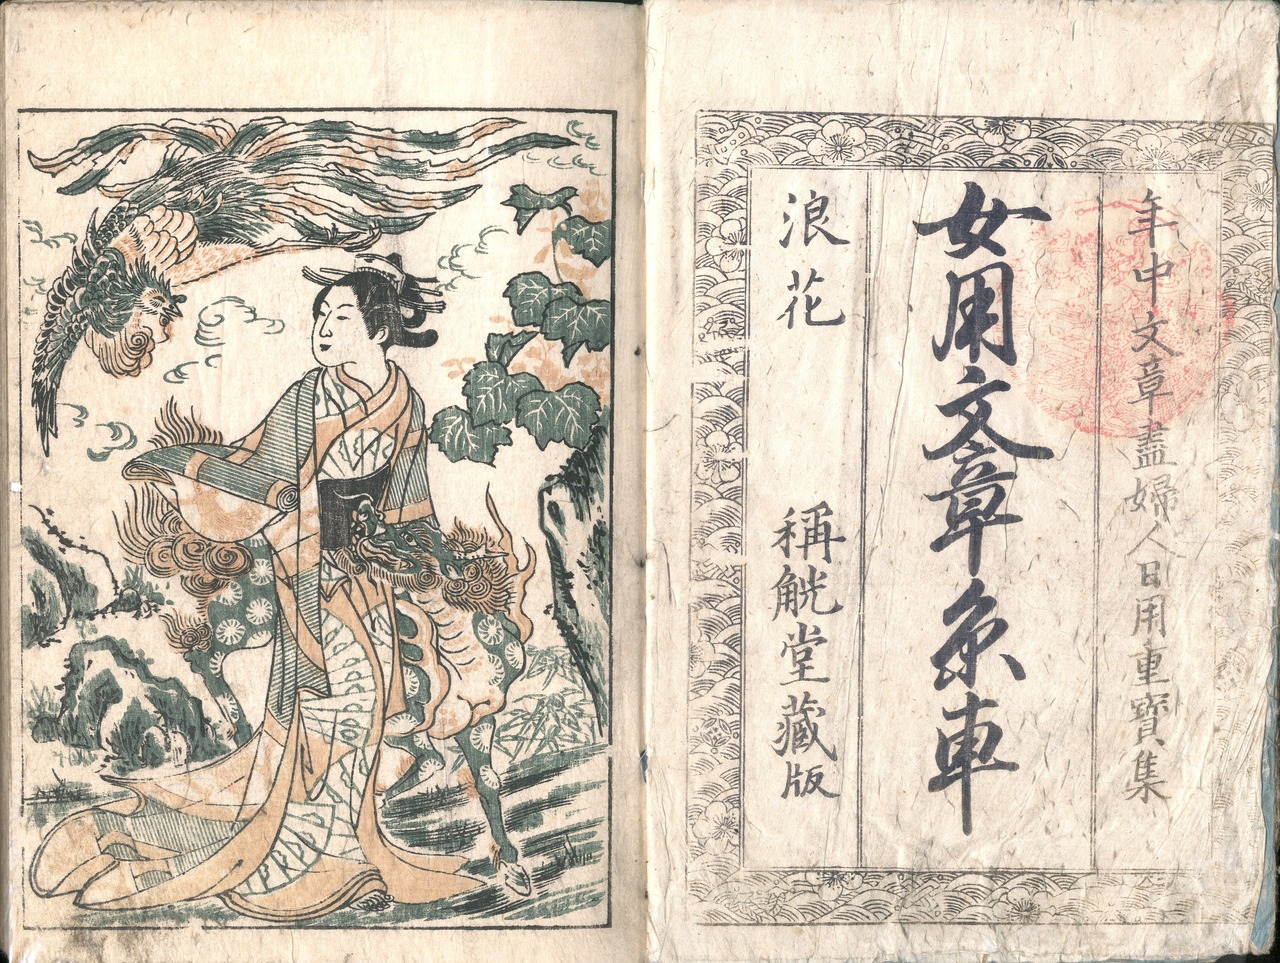 年中文章盡婦人日用重寳集
女用文章糸車
浪花 稱觥堂藏版